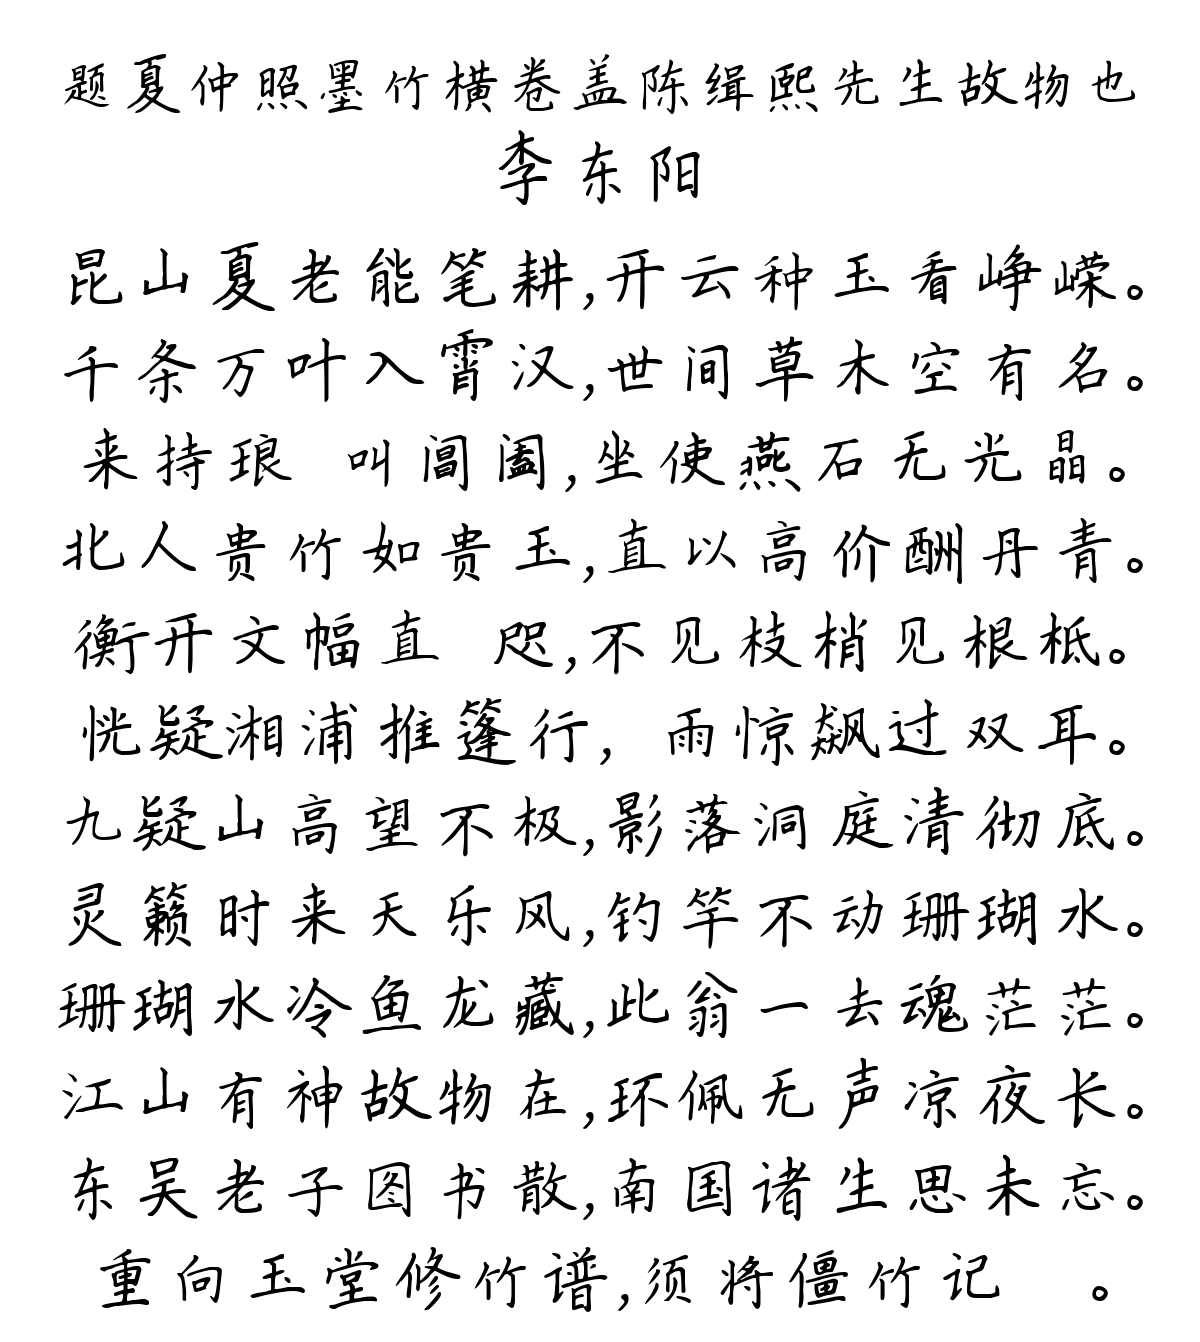 题夏仲照墨竹横卷盖陈缉熙先生故物也
李东阳
昆山夏老能笔耕,开云种玉看峥嵘。
千条万叶入霄汉,世间草木空有名。
来持琅 叫阊阖,坐使燕石无光晶。
北人贵竹如贵玉,直以高价酬丹青。
衡开文幅直 咫,不见枝梢见根柢。
恍疑湘浦推篷行, 雨惊飙过双耳。
九疑山高望不极,影落洞庭清彻底。
灵籁时来天乐风,钓竿不动珊瑚水。
珊瑚水冷鱼龙藏,此翁一去魂茫茫。
江山有神故物在,环佩无声凉夜长。
东吴老子图书散,南国诸生思未忘。
重向玉堂修竹谱,须将僵竹记 。